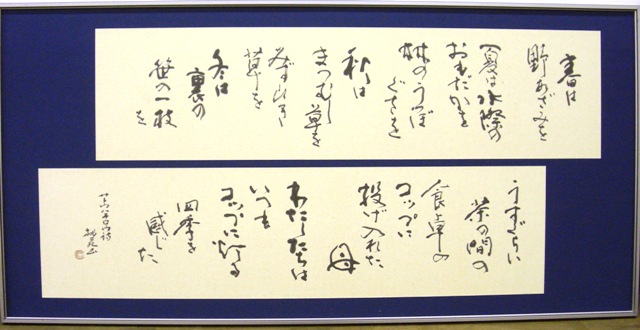 春は
野あざみを
夏は水際の
おもだかを
林のうつぼ
ぐさを
秋は
まつむし草を
みずひき
草を
冬は
裏の
笹の一枝
を
うすぐらい
茶の間の
食卓の
コップに
投げ入れた
母
わたしたちは
いつも
コップに灯る
四季を
感じた